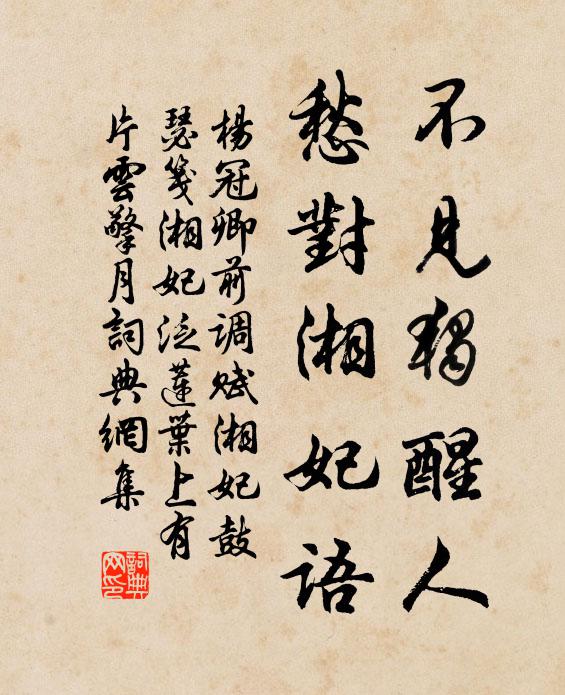 不見獨醒人
愁對湘妃語
楊冠卿前调赋湘妃鼓
瑟箋湘妃泛蓮葉上有
片雲擎月詞典網集
詞典
网印